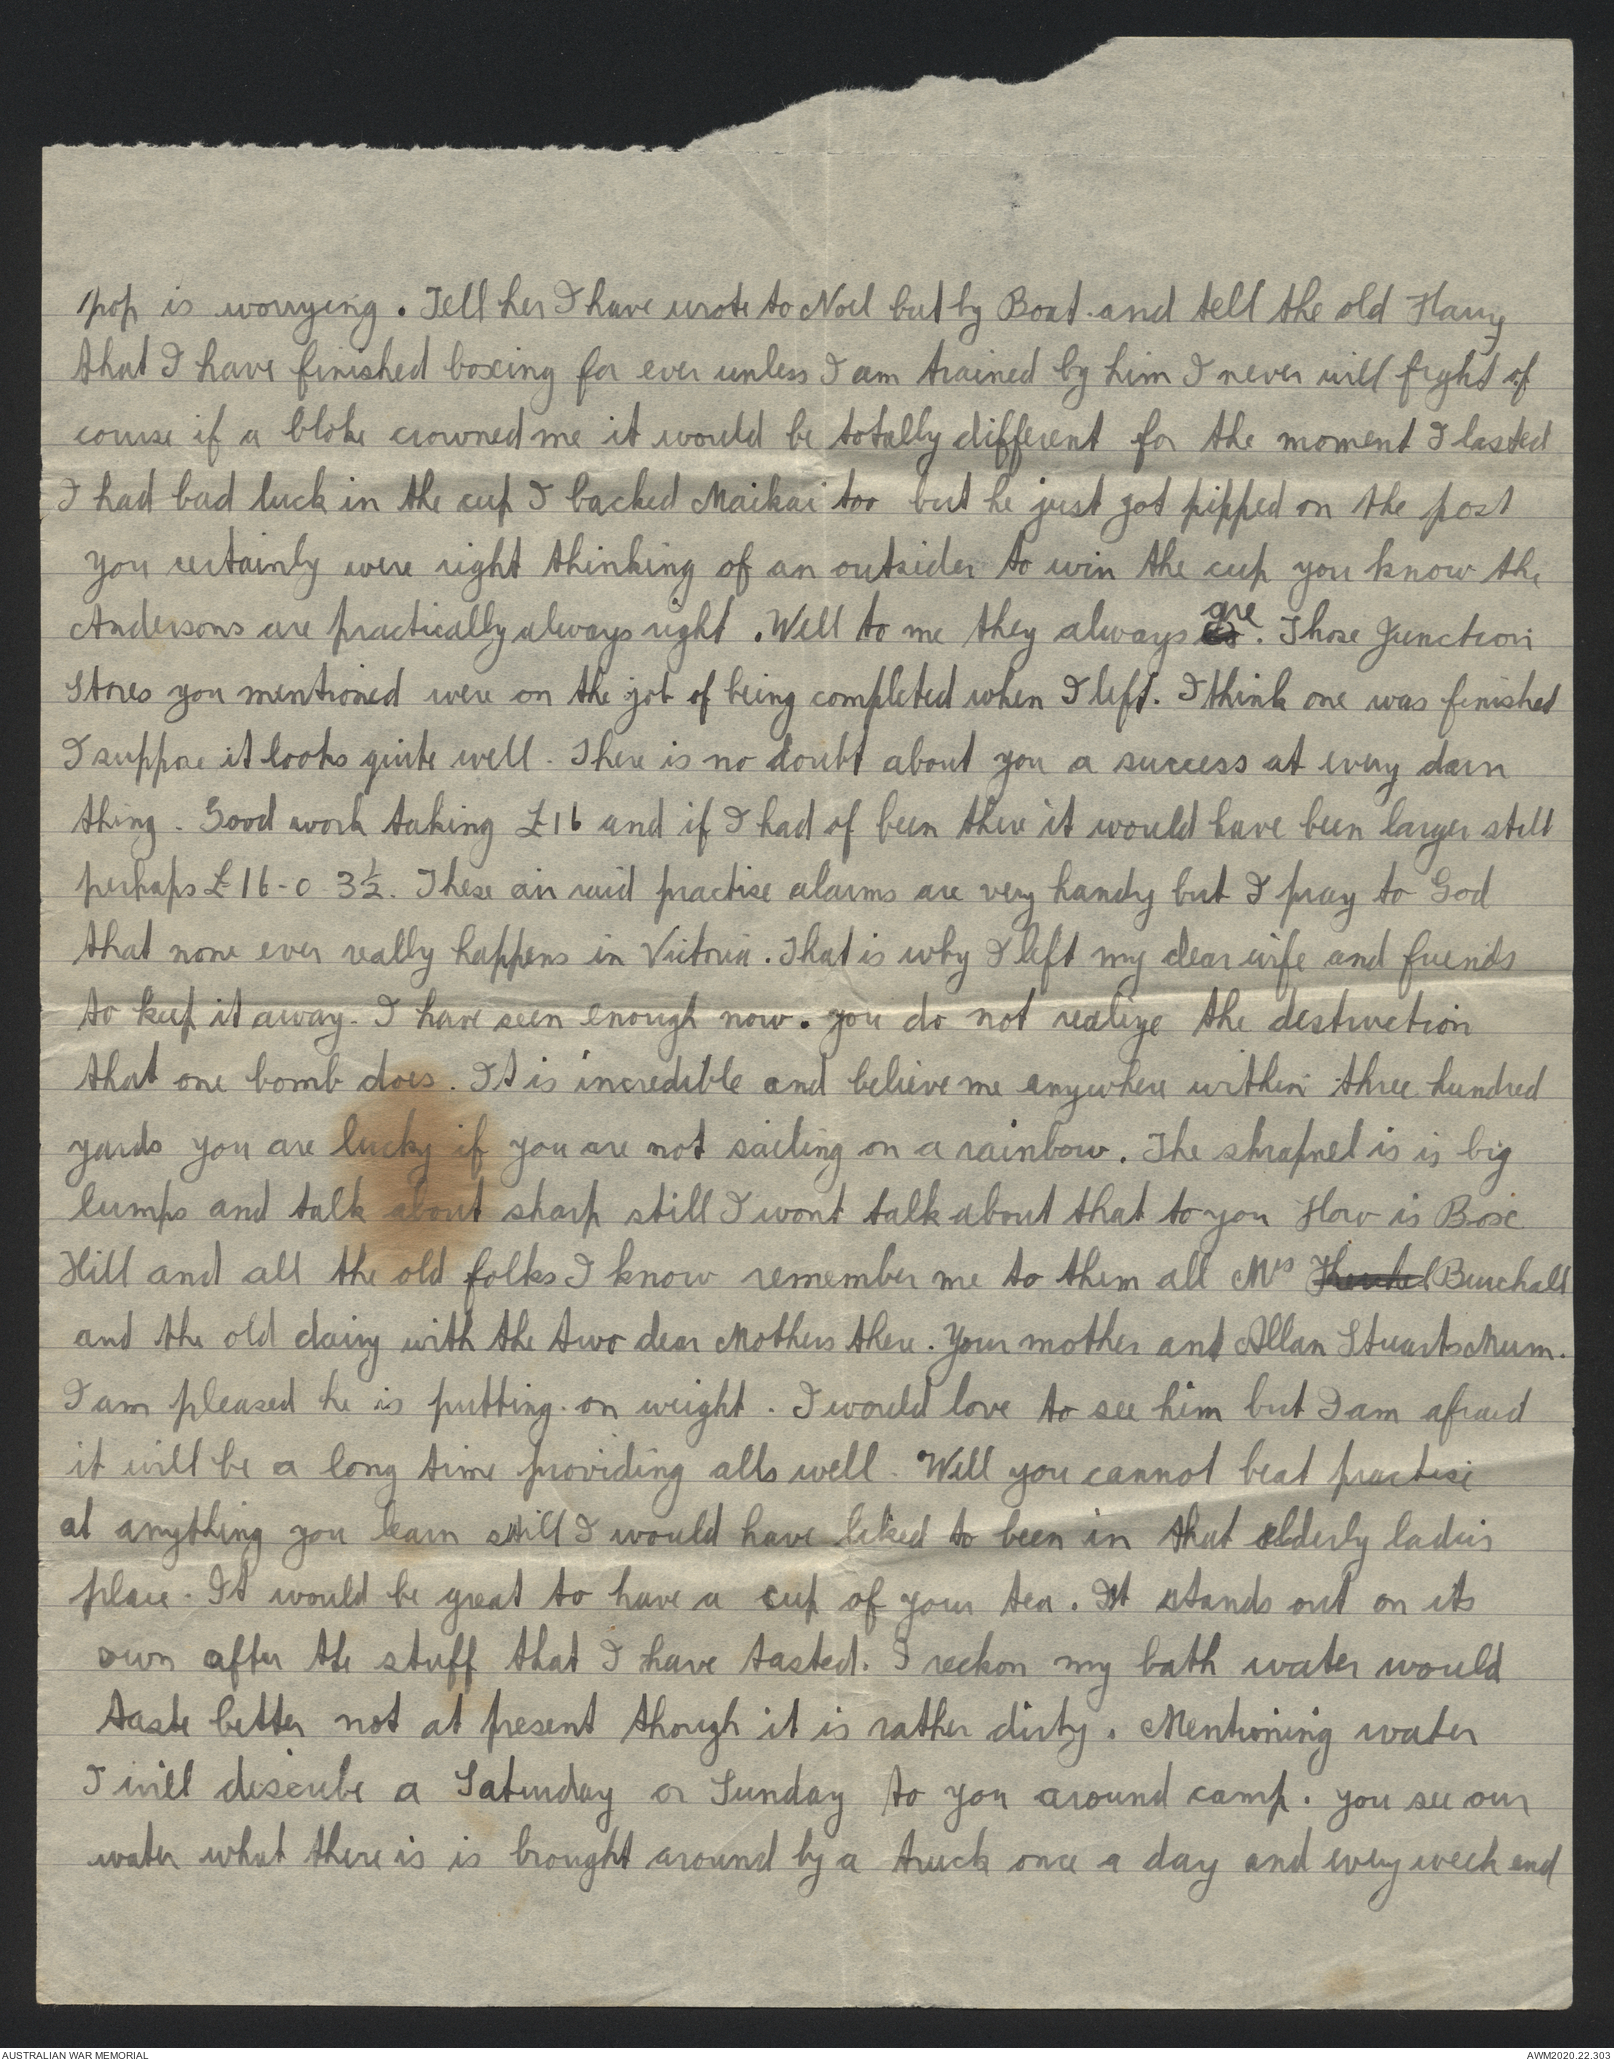 pop is worrying. Tell her I have wrote to Noel but by Boat and tell the old Harry
that I have finished boxing for ever unless I am trained by him I never will fight of
course if a bloke crowned me it would be totally different for the moment I lasted
I had bad luck in the cup I backed Maikai too but he just got pipped on the post
you certainly were right thinking of an outsider to win the cup you know the
Andersons are practically always right. Well to me they always are. Those Junction
Stores you mentioned were on the job of being completed when I left. I think one was finished
I suppose it looks quite well. There is no doubt about you a success at every darn
thing. Good work taking £16 and if I had of been there it would have been larger still
perhaps £16-0-3½. These air raid practise alarms are very handy but I pray to God
that none ever really happens in Victoria. That is why I left my dear wife and friends
to keep it away. I have seen enough now. you do not realize the destruction
that one bomb does. It is incredible and believe me anywhere within three hundred
yards you are lucky if you are not sailing on a rainbow. The shrapnel is is big
lumps and talk about sharp still I wont talk about that to you How is Box
Hill and all the old folks I know remember me to them all Mrs Burchall
and the old dairy with the two dear Mothers there. Your mother and Allan Stuarts Mum.
I am pleased he is putting on weight. I would love to see him but I am afraid
it will be a long time providing alls well. Well you cannot beat practise
at anything you learn still I would have liked to been in that elderly ladies
place. It would be great to have a cup of your tea. It stands out on its
own after the stuff that I have tasted. I reckon my bath water would
taste better not at present though it is rather dirty. Mentioning water
I will describe a Saturday or Sunday to you around camp. you see our
water what there is is brought around by a truck once a day and every week end
AUSTRALIAN WAR MEMORIAL
AWM2020.22.303